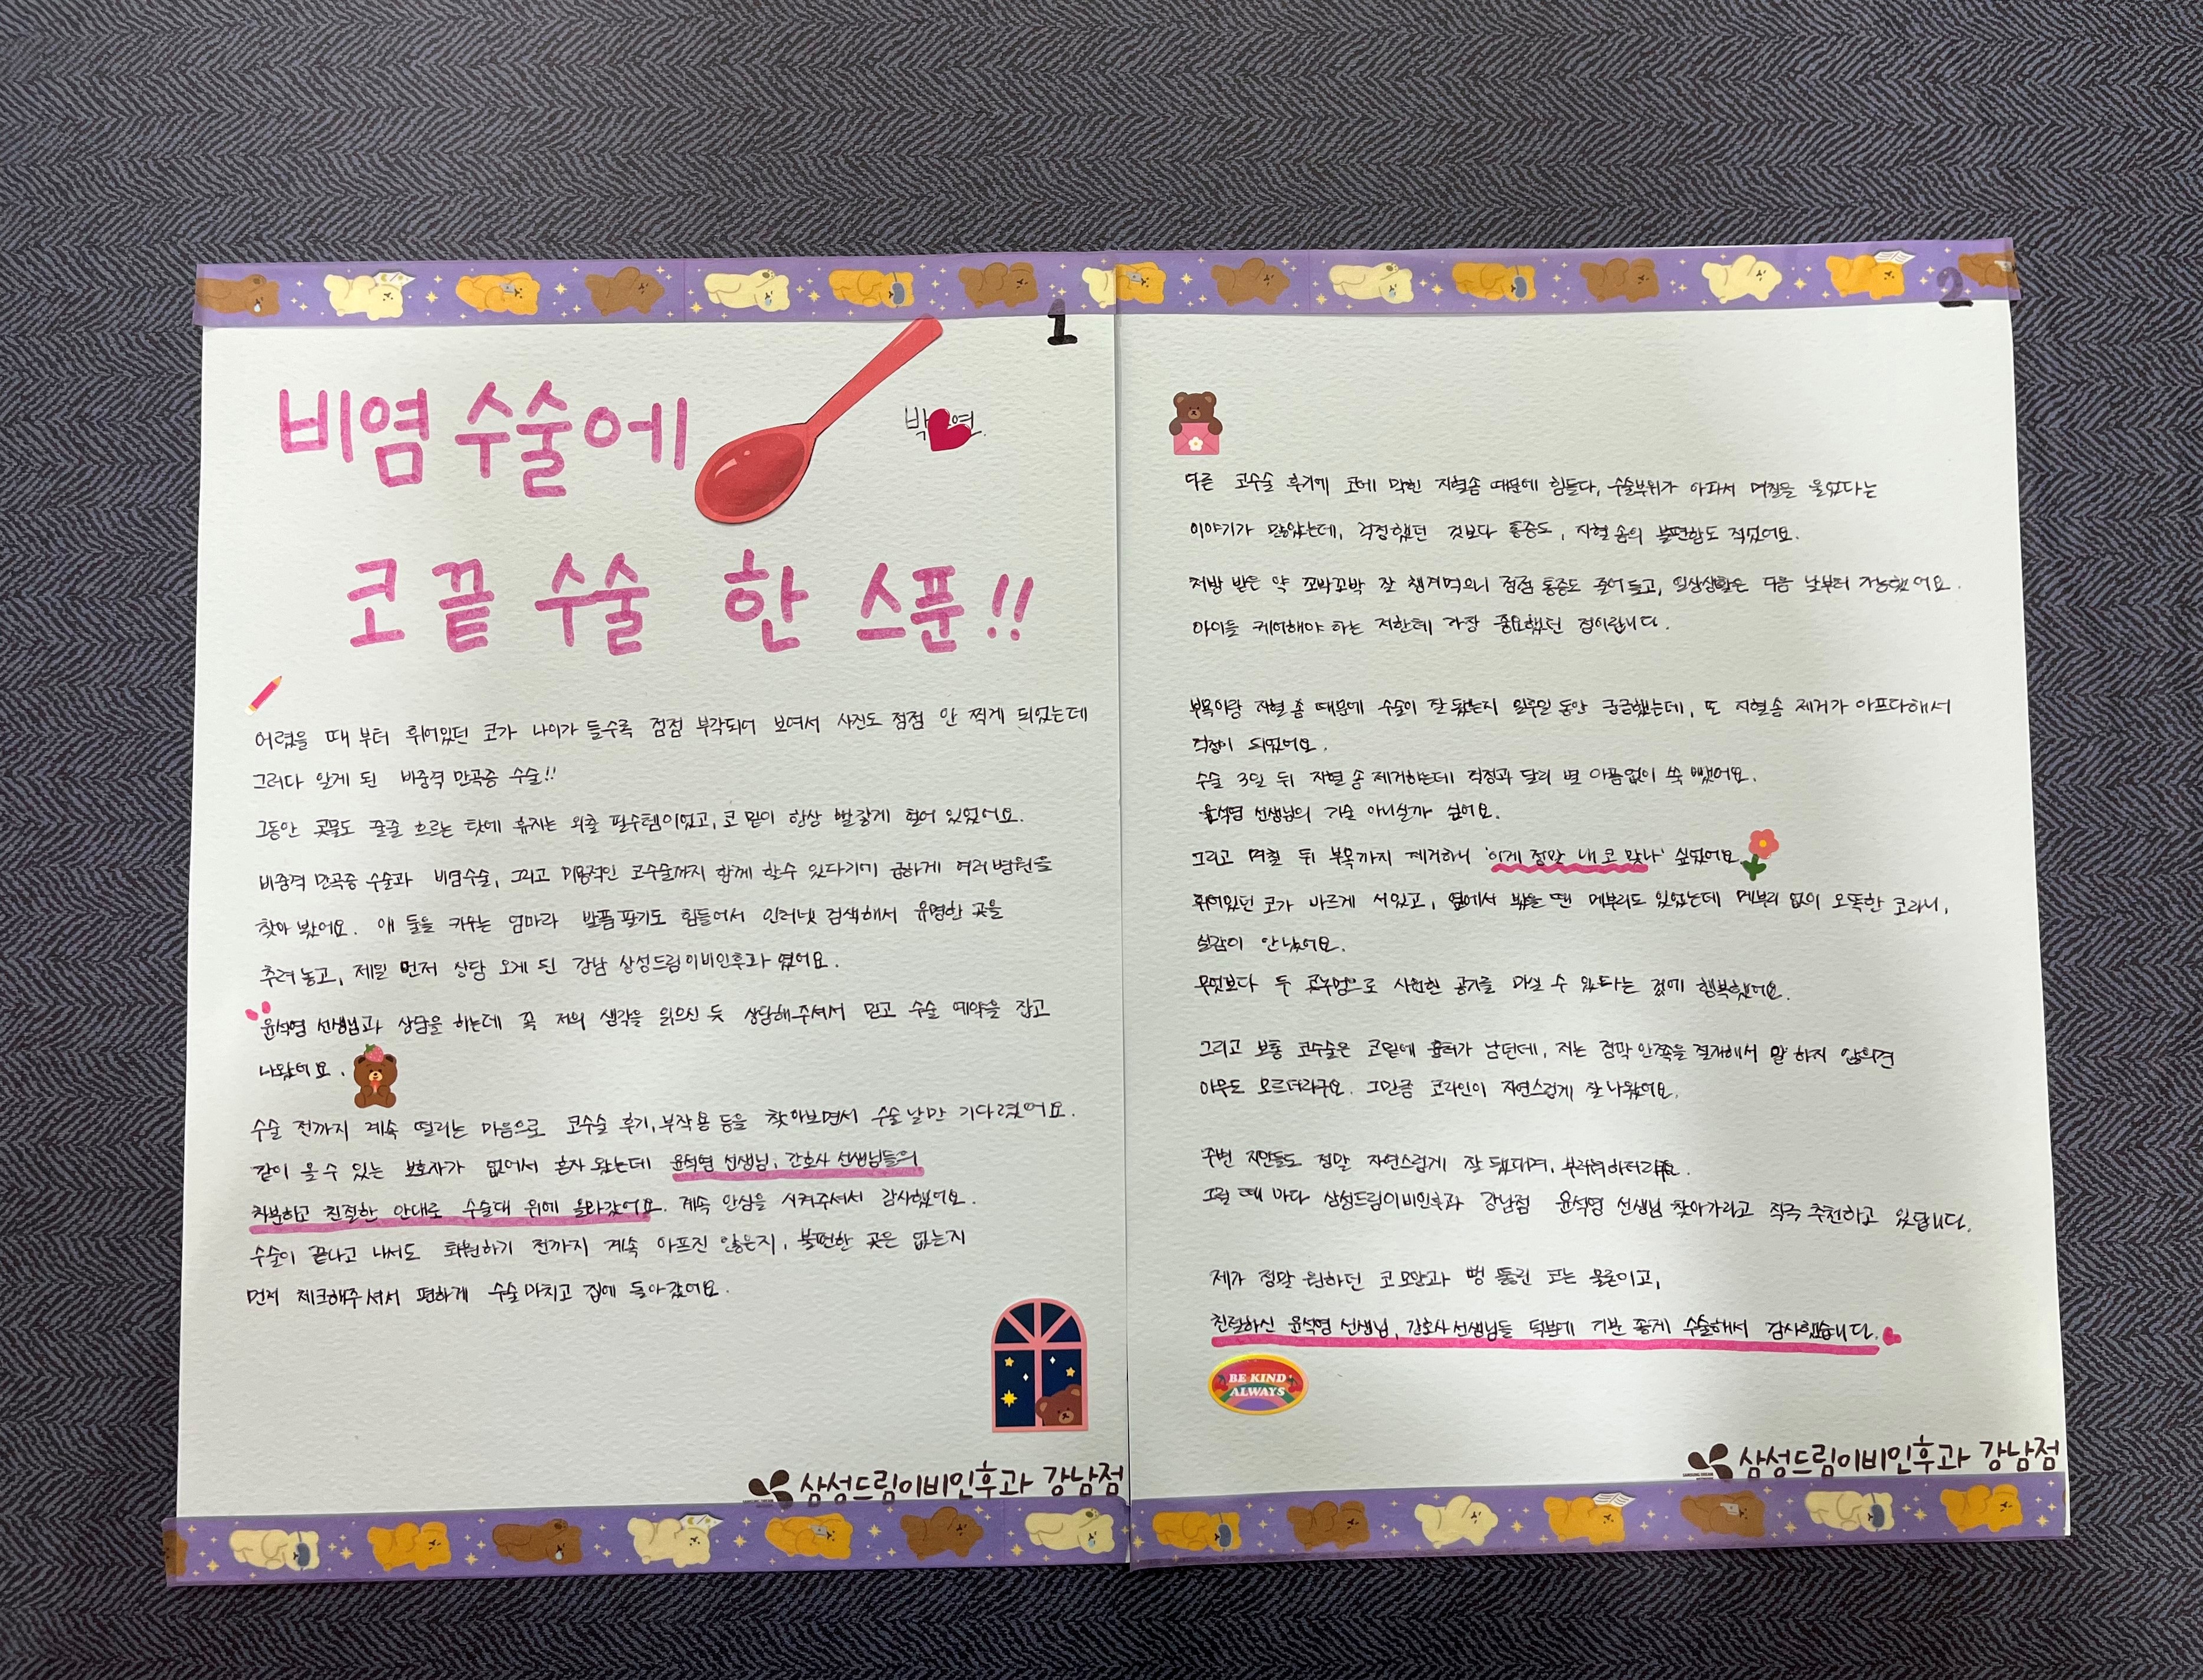 1
비염 수술에
박 연.
코 끝 수술 한 스푼!!
어렸을 때 부터 휘어있던 코가 나이가 들수록 점점 부각되어 보여서 사진도 점점 안 찍게 되었는데
그러다 알게 된 비중격 만곡증 수술!!
그동안 콧물도 줄줄 흐르는 탓에 휴지는 외출 필수템이었고, 코 밑이 항상 빨갛게 헐어 있었어요.
비중격 만곡증 수술과 비염수술, 그리고 미용적인 코수술까지 함께 할수 있다기에 급하게 여러병원을
찾아 봤어요. 애 둘을 키우는 엄마라 발품팔기도 힘들어서 인터넷 검색해서 유명한 곳을
추려 놓고, 제일 먼저 상담 오게 된 강남 삼성드림이비인후과 였어요.
윤석영 선생님과 상담을 하는데 꼭 저의 생각을 읽으신 듯 상담해주셔서 믿고 수술 예약을 잡고
나왔어요.
수술 전까지 계속 떨리는 마음으로 코수술 후기, 부작용 등을 찾아보면서 수술날만 기다렸어요.
같이 올 수 있는 보호자가 없어서 혼자 왔는데 윤석영 선생님, 간호사 선생님들의
차분하고 친절한 안내로 수술대 위에 올라갔어요. 계속 안심을 시켜주셔서 감사했어요.
수술이 끝나고 나서도 퇴원하기 전까지 계속 아프진 않은지, 불편한 곳은 없는지
먼저 체크해주셔서 편하게 수술 마치고 집에 돌아갔어요.
삼성드림이비인후과 강남점
2
다른 코수술 후기에 코에 막힌 지혈솜 때문에 힘들다, 수술부위가 아파서 며칠을 울었다는
이야기가 많았는데, 걱정했던 것보다 통증도, 지혈 솜의 불편함도 적었어요.
처방 받은 약 꼬박꼬박 잘 챙겨먹으니 점점 통증도 줄어 들고, 일상생활은 다음 날부터 가능했어요.
아이들 케어해야 하는 저한테 가장 중요했던 점이랍니다.
부목이랑 지혈 솜 때문에 수술이 잘 됐는지 일주일 동안 궁금했는데, 또 지혈솜 제거가 아프다해서
걱정이 되었어요.
수술 3일 뒤 지혈 솜 제거하는데 걱정과 달리 별 아픔없이 쏙 뺐어요.
윤석영 선생님의 기술 아니실까 싶어요.
그리고 며칠 뒤 부목까지 제거하니 '이게 정말 내 코 맞나' 싶었어요.
휘어있던 코가 바르게 서있고, 옆에서 봤을 땐 메부리도 있었는데 메부리 없이 오똑한 코라니,
실감이 안났어요.
무엇보다 두 콧구멍으로 시원한 공기를 마실 수 있다는 것에 행복했어요.
그리고 보통 코수술은 코밑에 흉터가 남던데, 저는 점막 안쪽을 절개해서 말 하지 않으면
아무도 모르더라구요. 그만큼 코라인이 자연스럽게 잘 나왔어요.
주변 지인들도 정말 자연스럽게 잘 됐다며, 부러워하더라구요.
그럴 때 마다 삼성드림이비인후과 강남점 윤석영 선생님 찾아가라고 적극 추천하고 있답니다.
제가 정말 원하던 코 모양과 뻥 뚫린 코는 물론이고,
친절하신 윤석영 선생님, 간호사 선생님들 덕분에 기분 좋게 수술해서 감사했습니다.
BE KIND
ALWAYS
삼성드림이비인후과 강남점